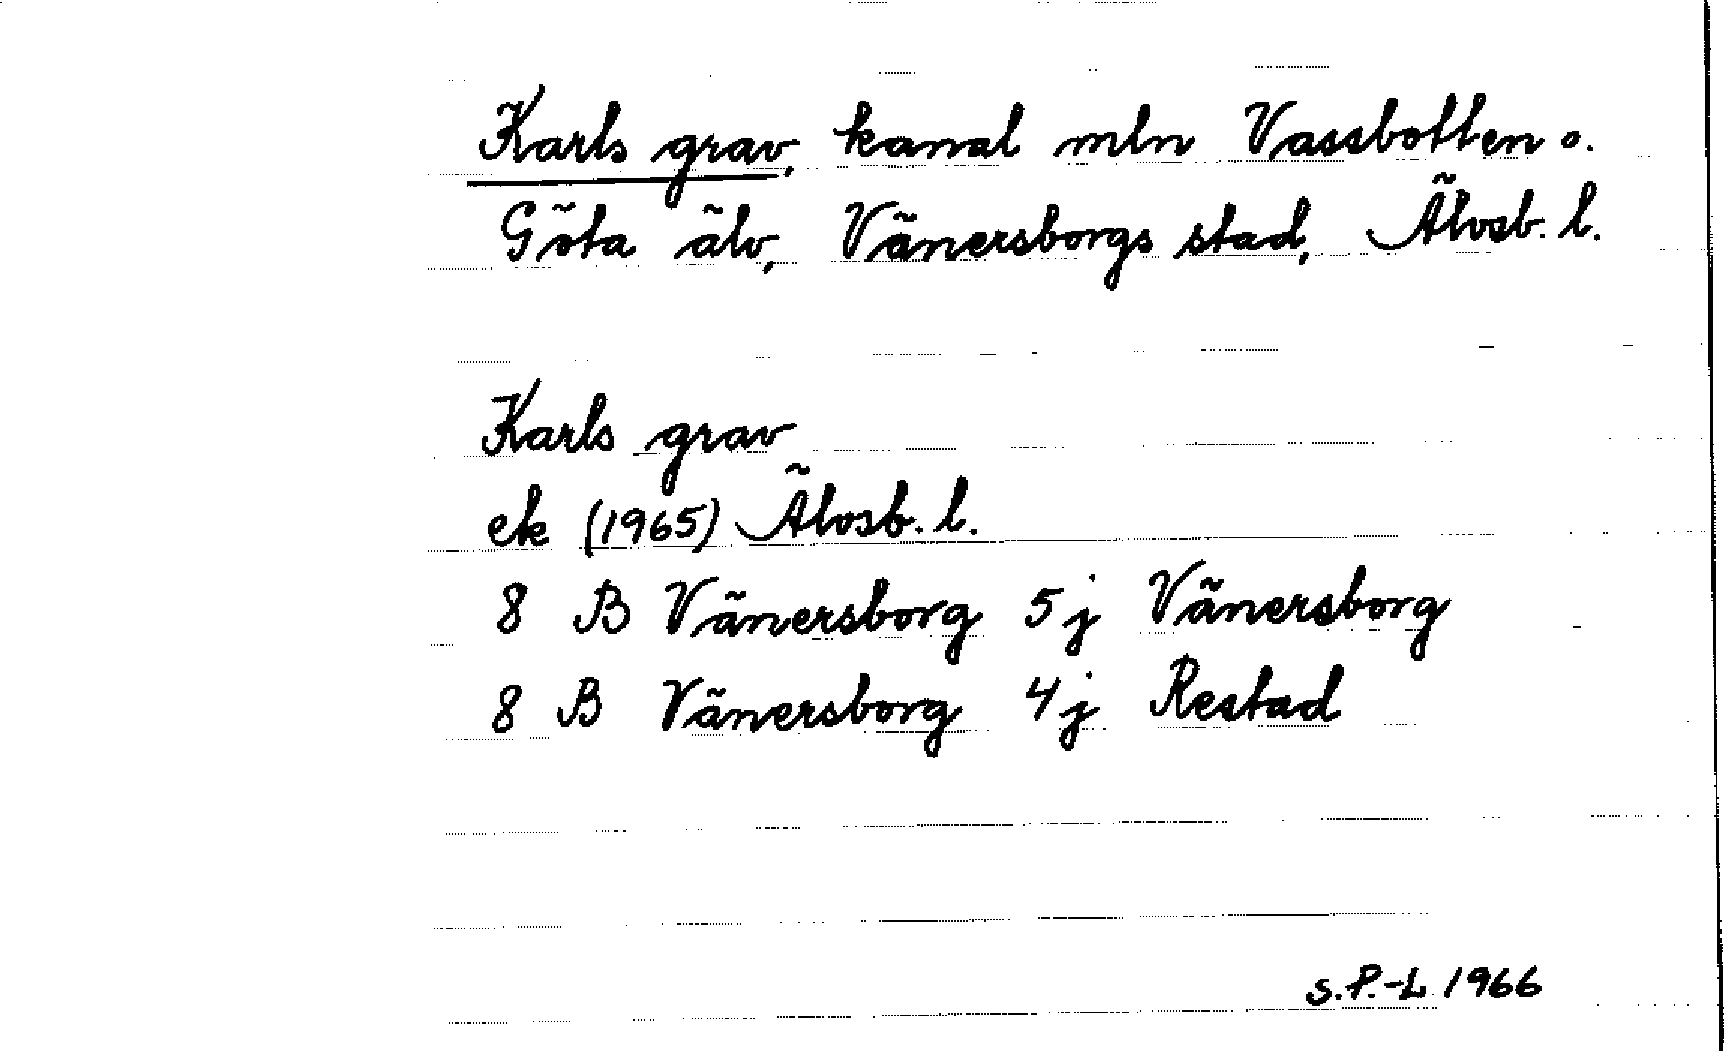 Karls grav, kanal mln Vassbotten o.
Göta älv, Vänersborgs stad, Älvsb. l.
Karls grav
ek (1965) Älvsb. l.
8 B Vänersborg 5j Vänersborg
8 B Vänersborg 4j Restad
S.P.-L 1966